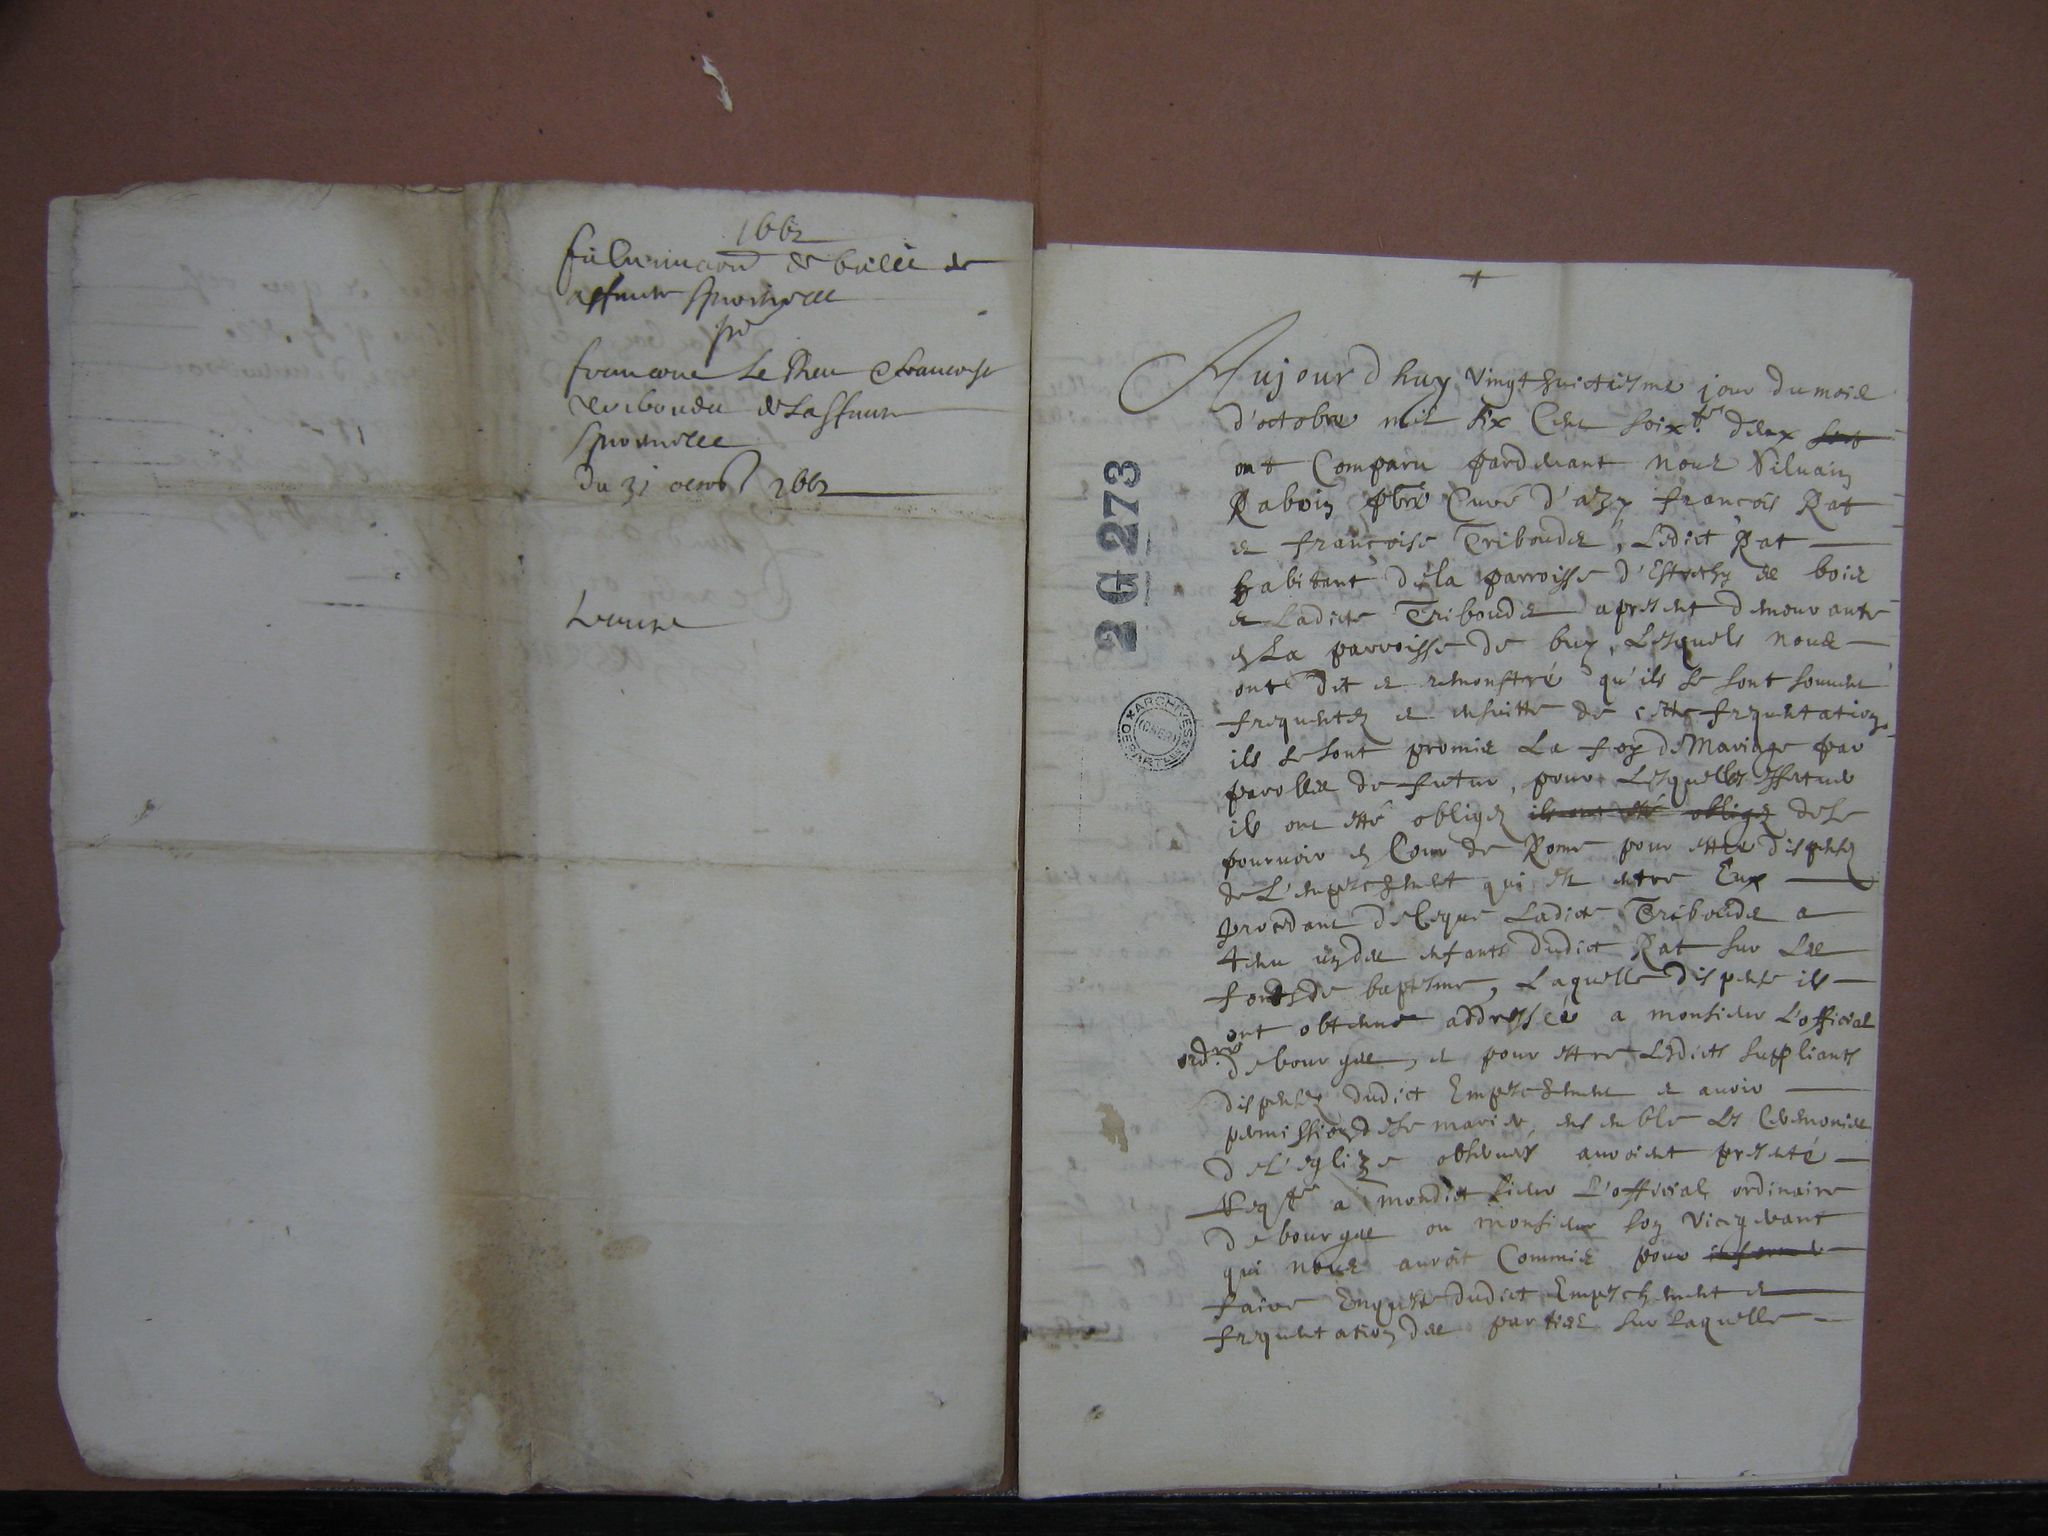 1662
fulminaon de bulle de
affinite spirituelle
pr
francois Le Rat & francoise
Triboudet de laffinite
spirituelle
du 31 octobr 1662
+
Aujourdhuy vingt huictiesme jour du mois
d'octobre mil six cent soixte deux
ont comparu pardevant nous Silvain
Raboin pbre curé d'azy françois Rat
et françoise Triboudet, Ledict Rat
habitant de la parroisse d'Estrechy de bois
et Ladicte Triboudet apresent demeurante
en La parroisse de buy, Lesquels nous
ont dit et remonstré qu'ils se sont souvent
frequentez et ensuitte de cette frequentation
ils se sont promis La foy de Mariage par
parolles de futur, pour Lesquelles effectuer
ils ont esté obligez ils ont esté obligez de se
pourvoir en Cour de Rome pour estre dispensez
de L'empeschement qui est entre Eux
procedant de ceque Ladicte Triboudet a
tenu un des enfants dudict Rat sur Les
fonts de baptesme, Laquelle dispense ils
ont obtenue addressée a monsieur L'official
ordre de bourges, et pour estre Lesdicts suppliants
dispensez dudict Empeschement et avoir
permission de se marier ensemble Les Ceremonies
de L'eglize observées auroient presenté
Reqte a mondict sieur L'official ordinaire
de bourges ou monsieur son vicegerant
qui nous auroit Commis pour informer
faire Enqueste dudict Empeschement et
frequentation des parties sur Laquelle
2 G 273
ARCHIVES
(CHER)
DEPARTLES